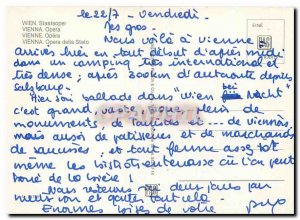 le 22/7 - Vendredi -
WIEN, Staatsoper
VIENNA, Opera
VIENNE, Opéra
VIENNA, Opera dello Stato
EINE
Les gros -
Nous voilà à Vienne
arrivés hier en tout début d'après midi
dans un camping très international et
très dense ; après 300km d'autoroute depuis
Salzburg.
Hier soir ballade dans "Wien bei Nacht"
c'est grand, vaste, plein de
monuments, de touristes et --- de viennois,
mais aussi de patisseries et de marchands
de saucisses ; et tout ferme assez tôt
même les bistrots terrasse où l'on peut
boire de la bière !
Nous restons deux jours
Enormes bises de votre